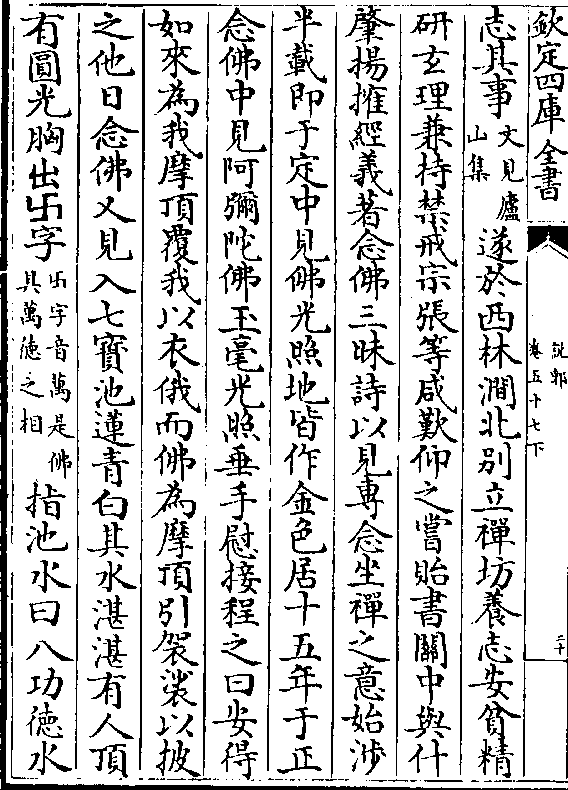 欽定四庫全書
志其事文見廬山集遂於西林澗北別立禪坊養志安貧精
研玄理兼持禁戒宗張等咸歎仰之嘗貽書關中與什
肇揚搉經義著念佛三昧詩以見專念坐禪之意始涉
半載即于定中見佛光照地皆作金色居十五年于正
念佛中見阿彌陀佛玉毫光照垂手慰接程之曰安得
如來為我摩頂覆我以衣俄而佛為摩頂引袈裟以披
之他日念佛又見入七寶池蓮青白其水湛湛有人頂
有圓光胸出卐字卐字音萬是佛具萬德之相指池水曰八功德水
說郛
卷五十七下
二十